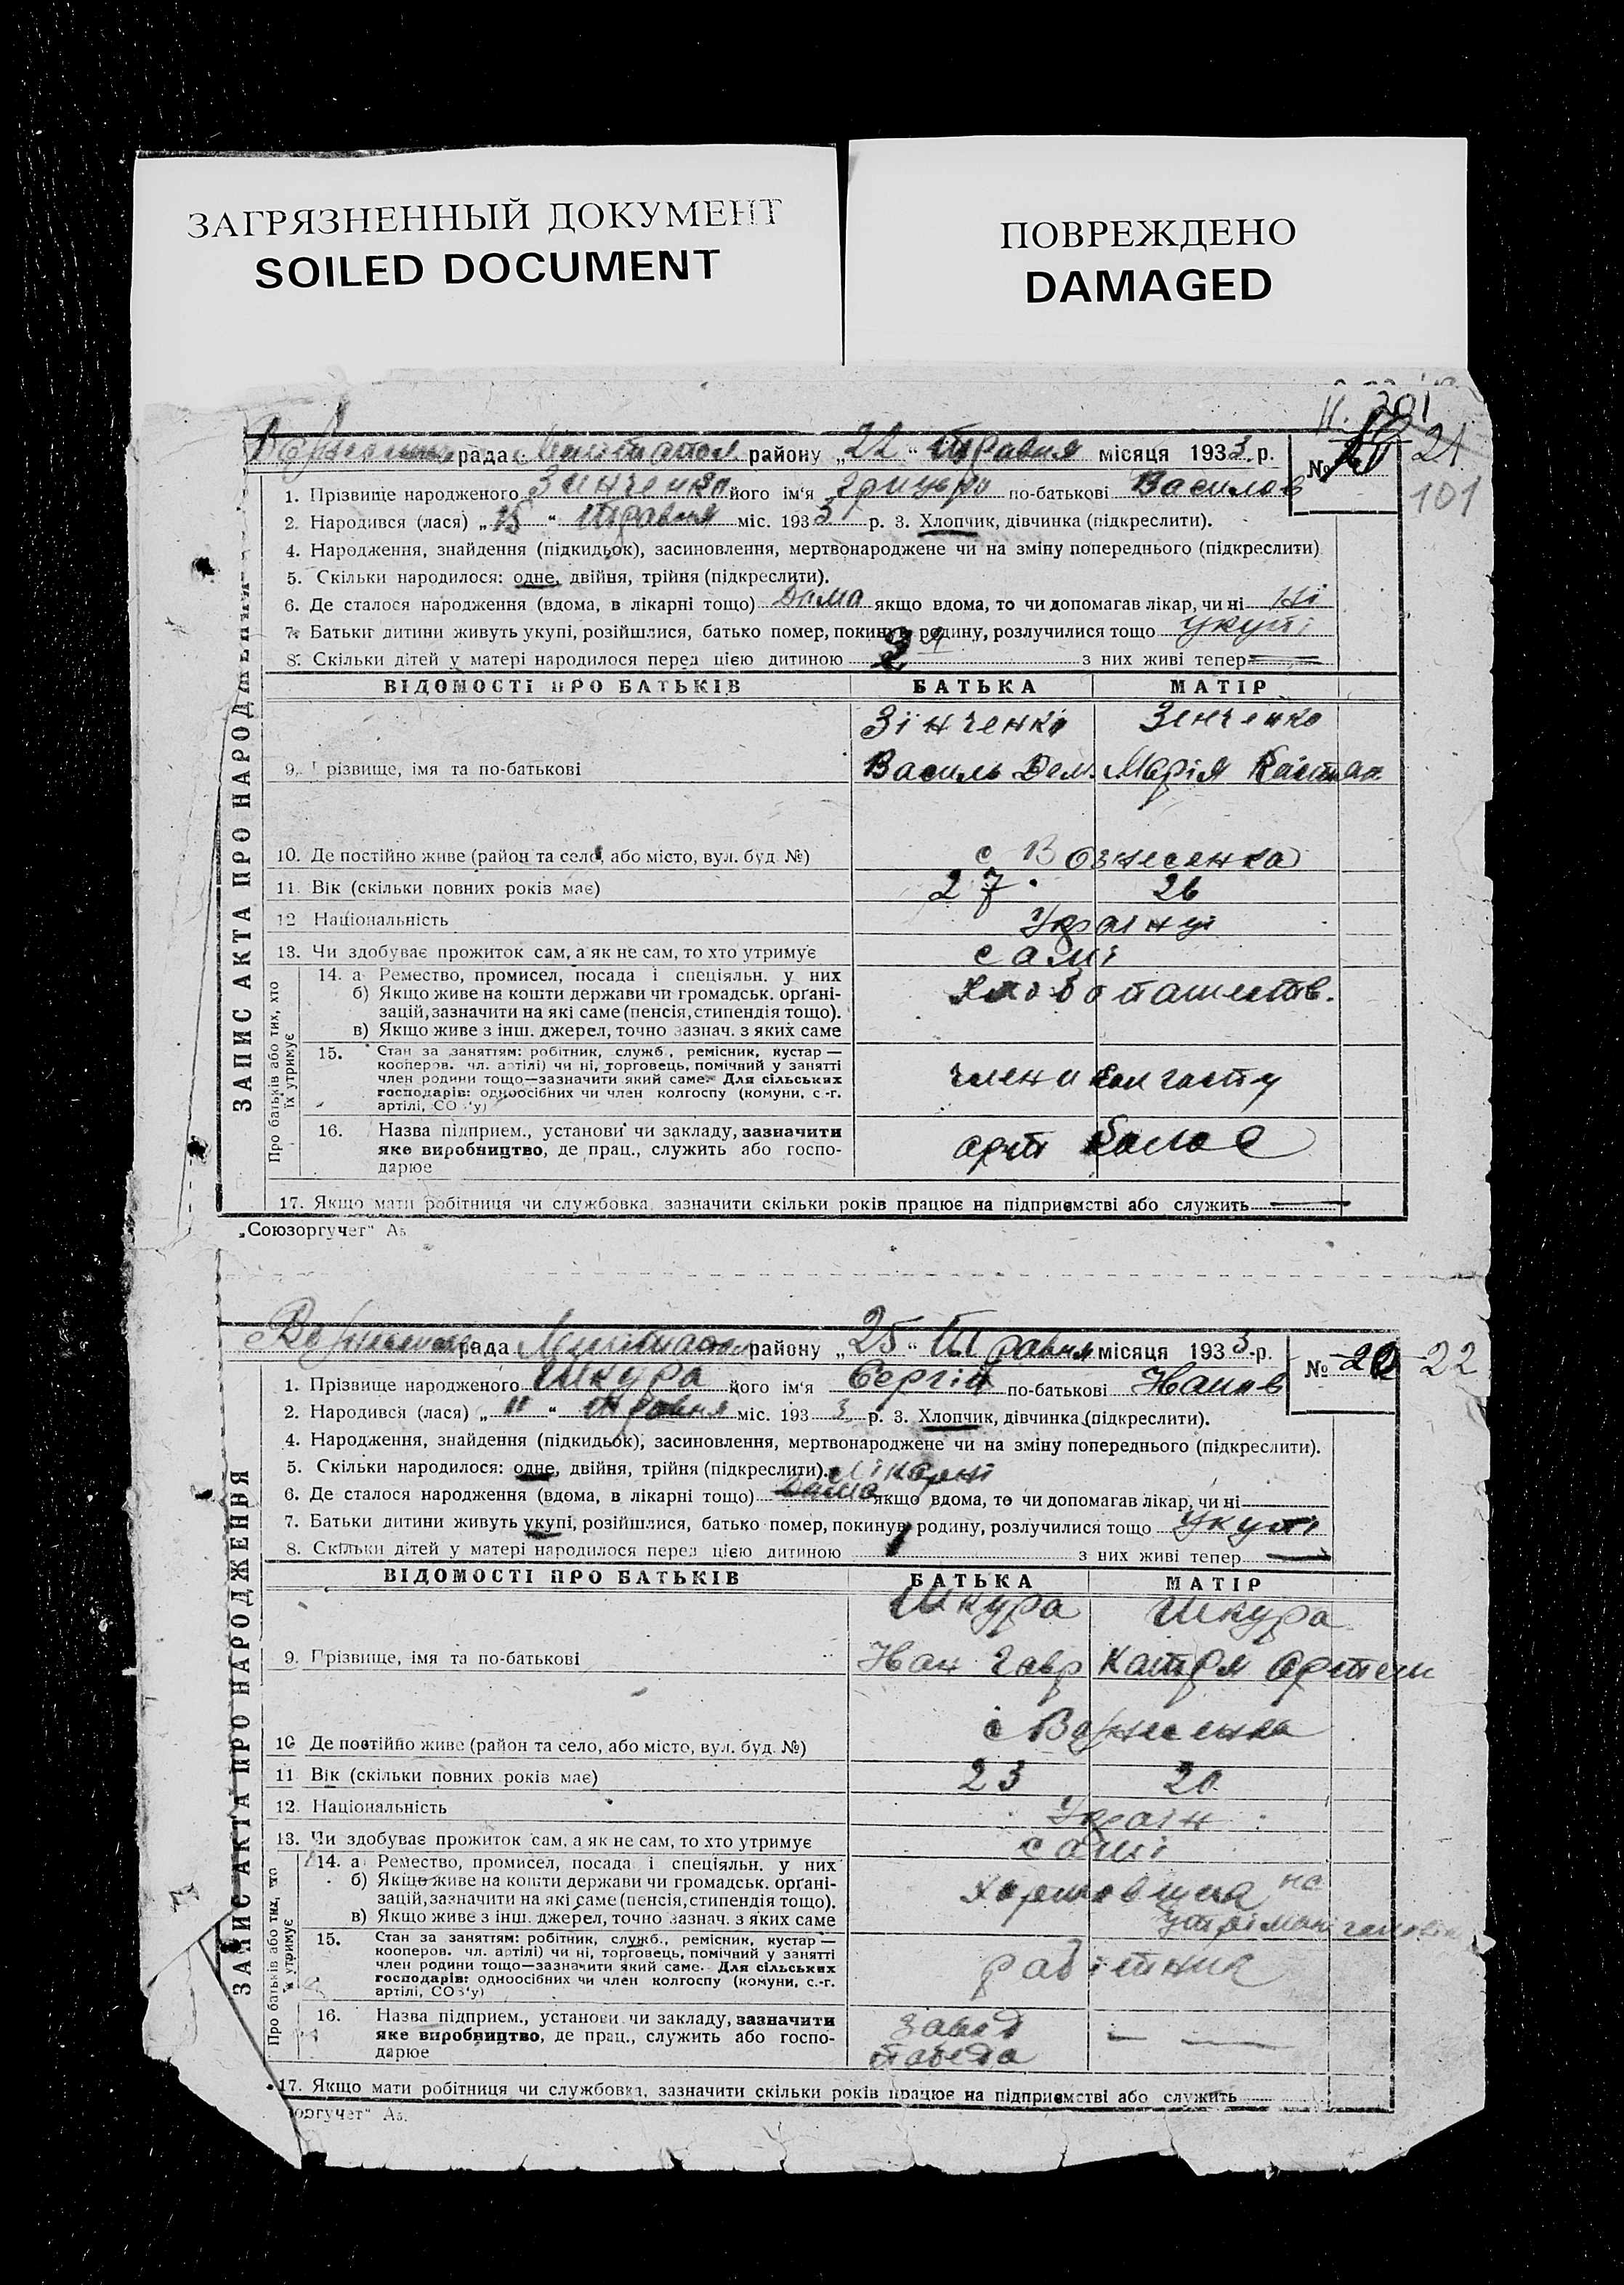 ЗАГРЯЗНЕННЫЙ ДОКУМЕНТ
SOILED DOCUMENT
ПОВРЕЖДЕНО
DAMAGED
201
рада района „22“ Травня місяця 1933 р. № 21
101
1. Прізвище народженого Зинченко його ім'я Грицько по-батькові Василов
2. Народився (лася) „15“ Травня міс. 1933 р. 3. Хлопчик, дівчинка (підкреслити).
4. Народження, знайдення (підкидьок), засиновлення, мертвонароджене чи на зміну попереднього (підкреслити)
5. Скільки народилося: одне, двійня, трійня (підкреслити).
6. Де сталося народження (вдома, в лікарні тощо) Дома якщо вдома, то чи допомагав лікар, чи ні Ні
7. Батьки дитини живуть укупі, розійшлися, батько помер, покинув родину, розлучилися тощо укупі
8. Скільки дітей у матері народилося перед цією дитиною з них живі тепер
ВІДОМОСТІ ПРО БАТЬКІВ БАТЬКА МАТІР
Зінченко Зенченко
9. Прізвище, імя та по-батькові Василь Дем. Марія
10. Де постійно живе (район та село, або місто, вул. буд. №) с Вознесенка
11. Вік (скільки повних років має) 27 26
12 Національність Українці
13. Чи здобуває прожиток сам, а як не сам, то хто утримує самі
Про батьків або тих, хто їх утримує
14. а Ремество, промисел, посада і спеціяльн. у них
б) Якщо живе на кошти держави чи громадськ. орґані-
зацій, зазначити на які саме (пенсія, стипендія тощо).
в) Якщо живе з інш. джерел, точно зазнач. з яких саме
15. Стан за заняттям: робітник, служб., ремісник, кустар —
кооперов. чл. артілі) чи ні, торговець, помічний у занятті
член родини тощо—зазначити який саме. Для сільських
господарів: одноосібних чи член колгоспу (комуни, с.-г.
артілі, СОЗ'у)
члени колгоспу
16. Назва підприєм., установи чи закладу, зазначити
яке виробництво, де прац., служить або госпо-
дарює
арт Колос
17. Якщо мати робітниця чи службовка зазначити скільки років працює на підприємстві або служить
ЗАПИС АКТА ПРО НАРОДЖЕННЯ
„Союзоргучет“ Аз
рада району „25“ Травня місяця 1933 р. № 20 22
1. Прізвище народженого Шкура його ім'я Сергій по-батькові Іванов
2. Народився (лася) „11“ Травня міс. 1933 р. 3. Хлопчик, дівчинка (підкреслити).
4. Народження, знайдення (підкидьок), засиновлення, мертвонароджене чи на зміну попереднього (підкреслити).
5. Скільки народилося: одне, двійня, трійня (підкреслити). лікарні
6. Де сталося народження (вдома, в лікарні тощо) Дома якщо вдома, то чи допомагав лікар, чи ні
7. Батьки дитини живуть укупі, розійшлися, батько помер, покинув родину, розлучилися тощо укупі
8. Скільки дітей у матері народилося перед цією дитиною 1 з них живі тепер
ВІДОМОСТІ ПРО БАТЬКІВ БАТЬКА МАТІР
Шкура Шкура
9. Прізвище, імя та по-батькові Іван Гавр Катря Артем
10 Де постійно живе (район та село, або місто, вул. буд. №) с Вознесенка
11 Вік (скільки повних років має) 23 20
12. Національність Україн
13. Чи здобуває прожиток сам, а як не сам, то хто утримує самі
Про батьків або тих, хто їх утримує
14. а Ремество, промисел, посада і спеціяльн. у них
б) Якщо живе на кошти держави чи громадськ. орґані-
зацій, зазначити на які саме (пенсія, стипендія тощо).
в) Якщо живе з інш. джерел, точно зазнач. з яких саме
на
15. Стан за заняттям: робітник, служб., ремісник, кустар —
кооперов. чл. артілі) чи ні, торговець, помічний у занятті
член родини тощо—зазначити який саме. Для сільських
господарів: одноосібних чи член колгоспу (комуни, с.-г.
артілі, СОЗ'у)
робітник
16. Назва підприєм., установи чи закладу, зазначити
яке виробництво, де прац., служить або госпо-
дарює
завод
победа
17. Якщо мати робітниця чи службовка, зазначити скільки років працює на підприємстві або служить
ЗАПИС АКТА ПРО НАРОДЖЕННЯ
оргучет“ Аз.